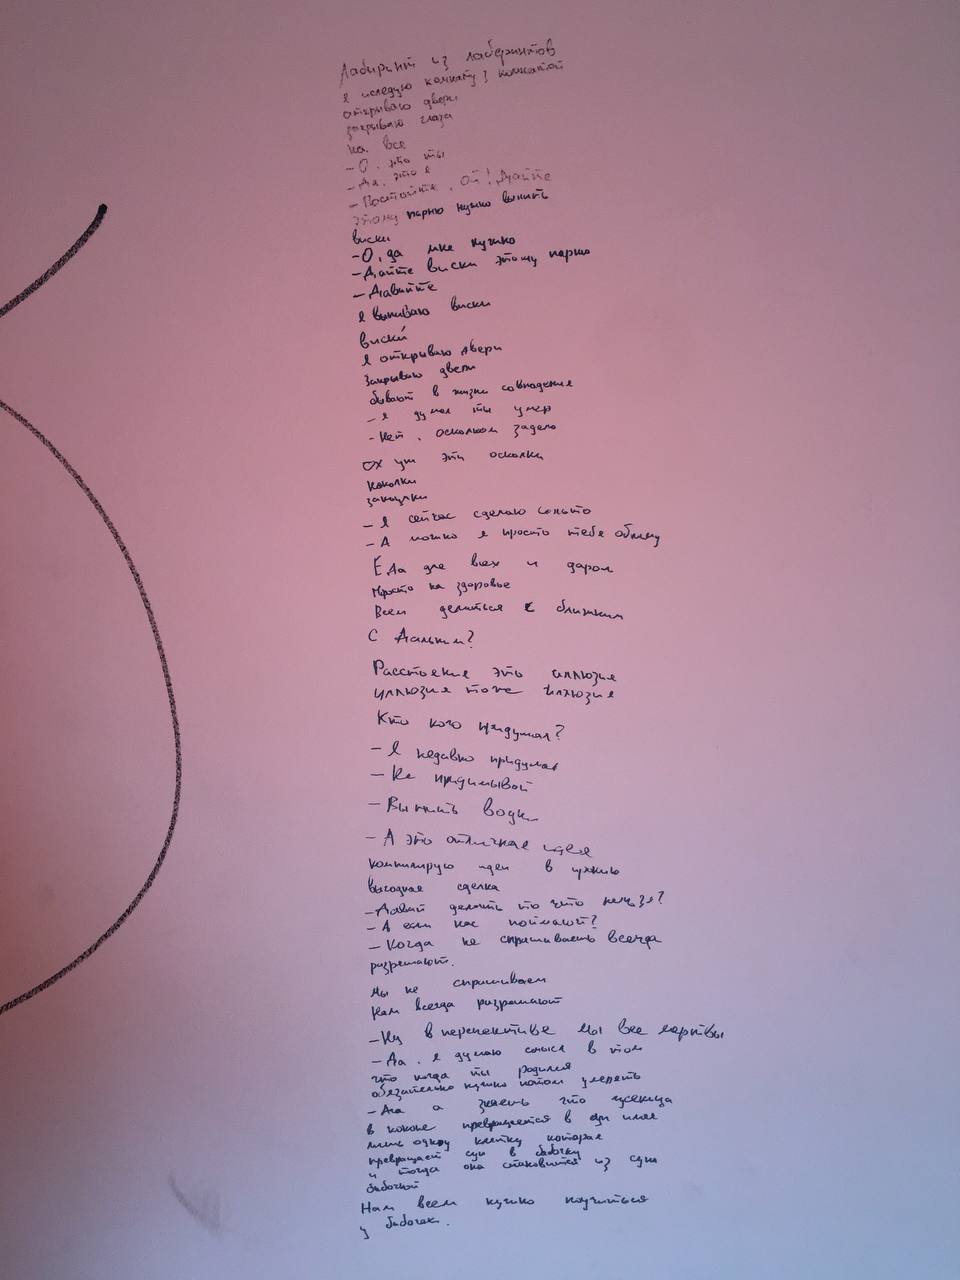 Лабиринт из лаберинтов
я иследую комнату з комнатой
открываю двери
закрываю глаза
на все
- О, это ты
- Да, это я
- Постойте, ой! Дайте
этому парню нужно выпить
виски
- О, да мне нужно
- Дайте виски этому парню
- Давайте
я выпиваю виски
виски
я открываю двери
Закрываю двери
бывают в жизни совпадения
- я думал ты умер
- Нет, осколком задело
ох уж эти осколки
заколки
- Я сейчас сделаю
- А можно я просто тебя обниму
Еда для всех и даром
Просто на здоровье
Всем делиться с ближним
С Дальним?
Расстояние это иллюзия
иллюзия тоже иллюзия
Кто кого придумал?
- Я недавно придумал
- Не придумывай
- Выпить водки
- А это отличная идея
компилирую идеи в
выгодная сделка
- Давай делать то что нельзя?
- А если нас поймают?
- Когда не спрашиваешь всегда
разрешают.
Мы не спрашиваем
Нам всегда разрешают
- Ну в перспективе мы все мертвы
- Да, я думаю смысл в том
что когда ты родился
обязательно нужно потом умереть
- Ага а знаешь что гусеница
в коконе превращается в суп имея
лишь одну клетку которая
превращает суп в бабочку
и тогда она становится из супа
бабочкой
Нам всем нужно поучиться
у бабочек.